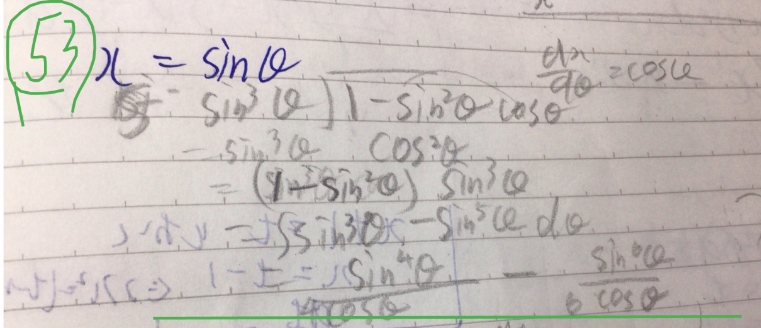 53 x = sinθ
dx/dθ = cosθ
sin³θ √1 - sin²θ cosθ
= sin³θ cos²θ
= (1 - sin²θ) sin³θ
= ∫sin³θ - sin⁵θ dθ
sin⁴θ/4cosθ - sin⁶θ/6 cosθ